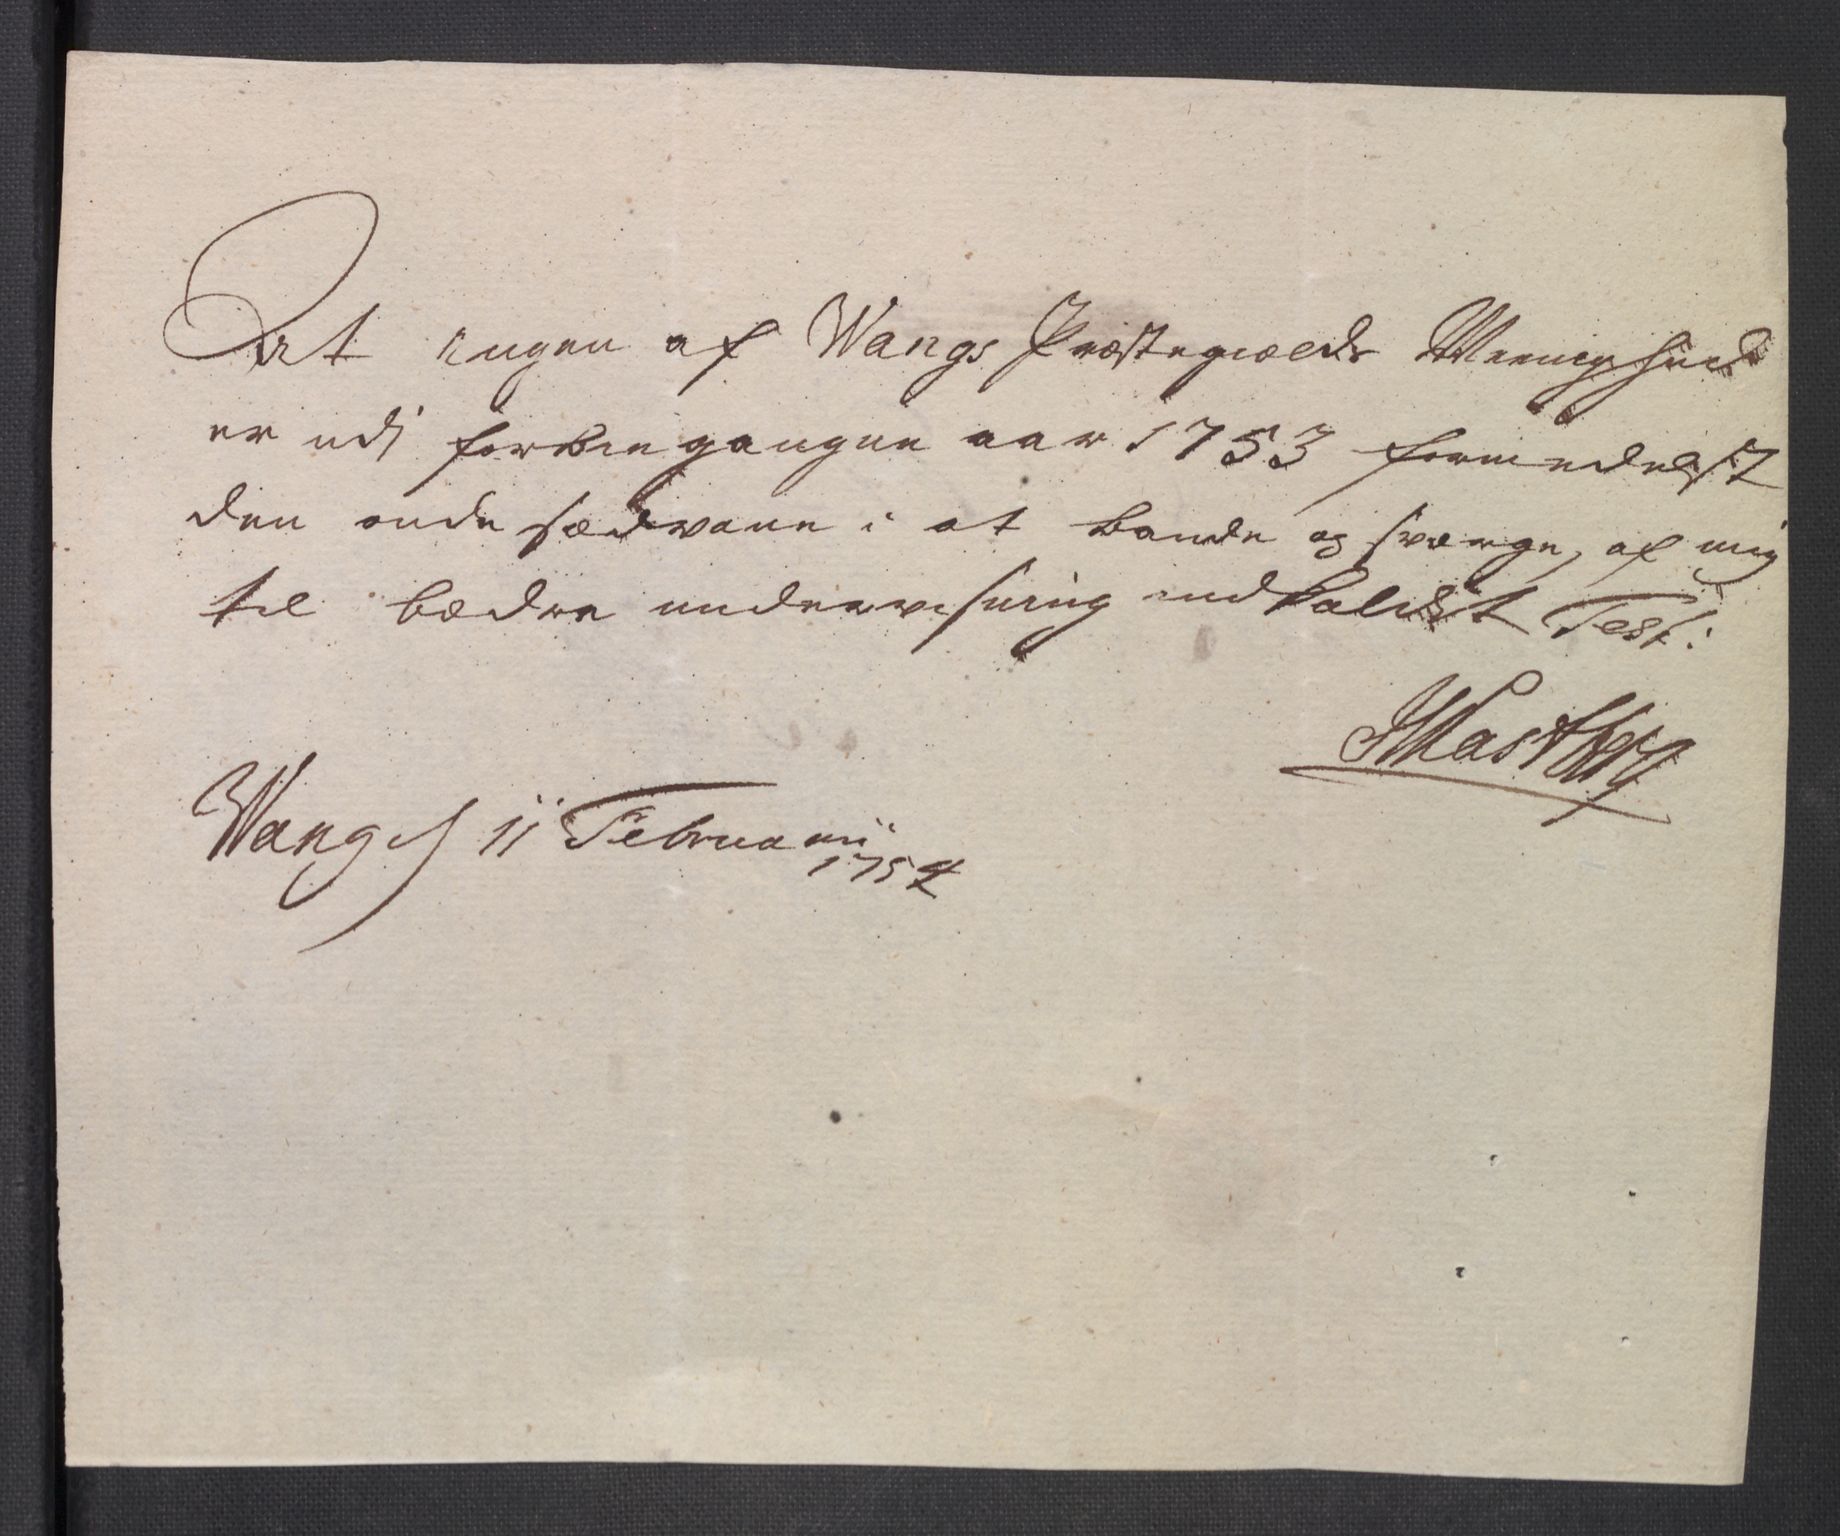 At ingen af Wangs Præstegields Meenighed
er udi forbengangen aar 1753 formedelst
den onde sædvane i at bande og sværge, af mig
til bædre underviisning indkaldet Test:
Wang d 11 Februarii
1754